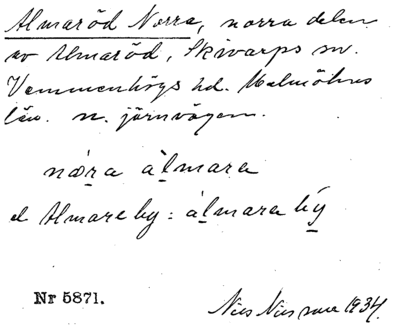 Almaröd Norra, norra delen
av Almaröd, Skivarps sn.
Vemmenhögs hd. Malmöhus
län. n. järnvägen.
nǽra àlmara
el Almareby: àlmara bý
Nr 5871.
Nils Nilsson 1934.